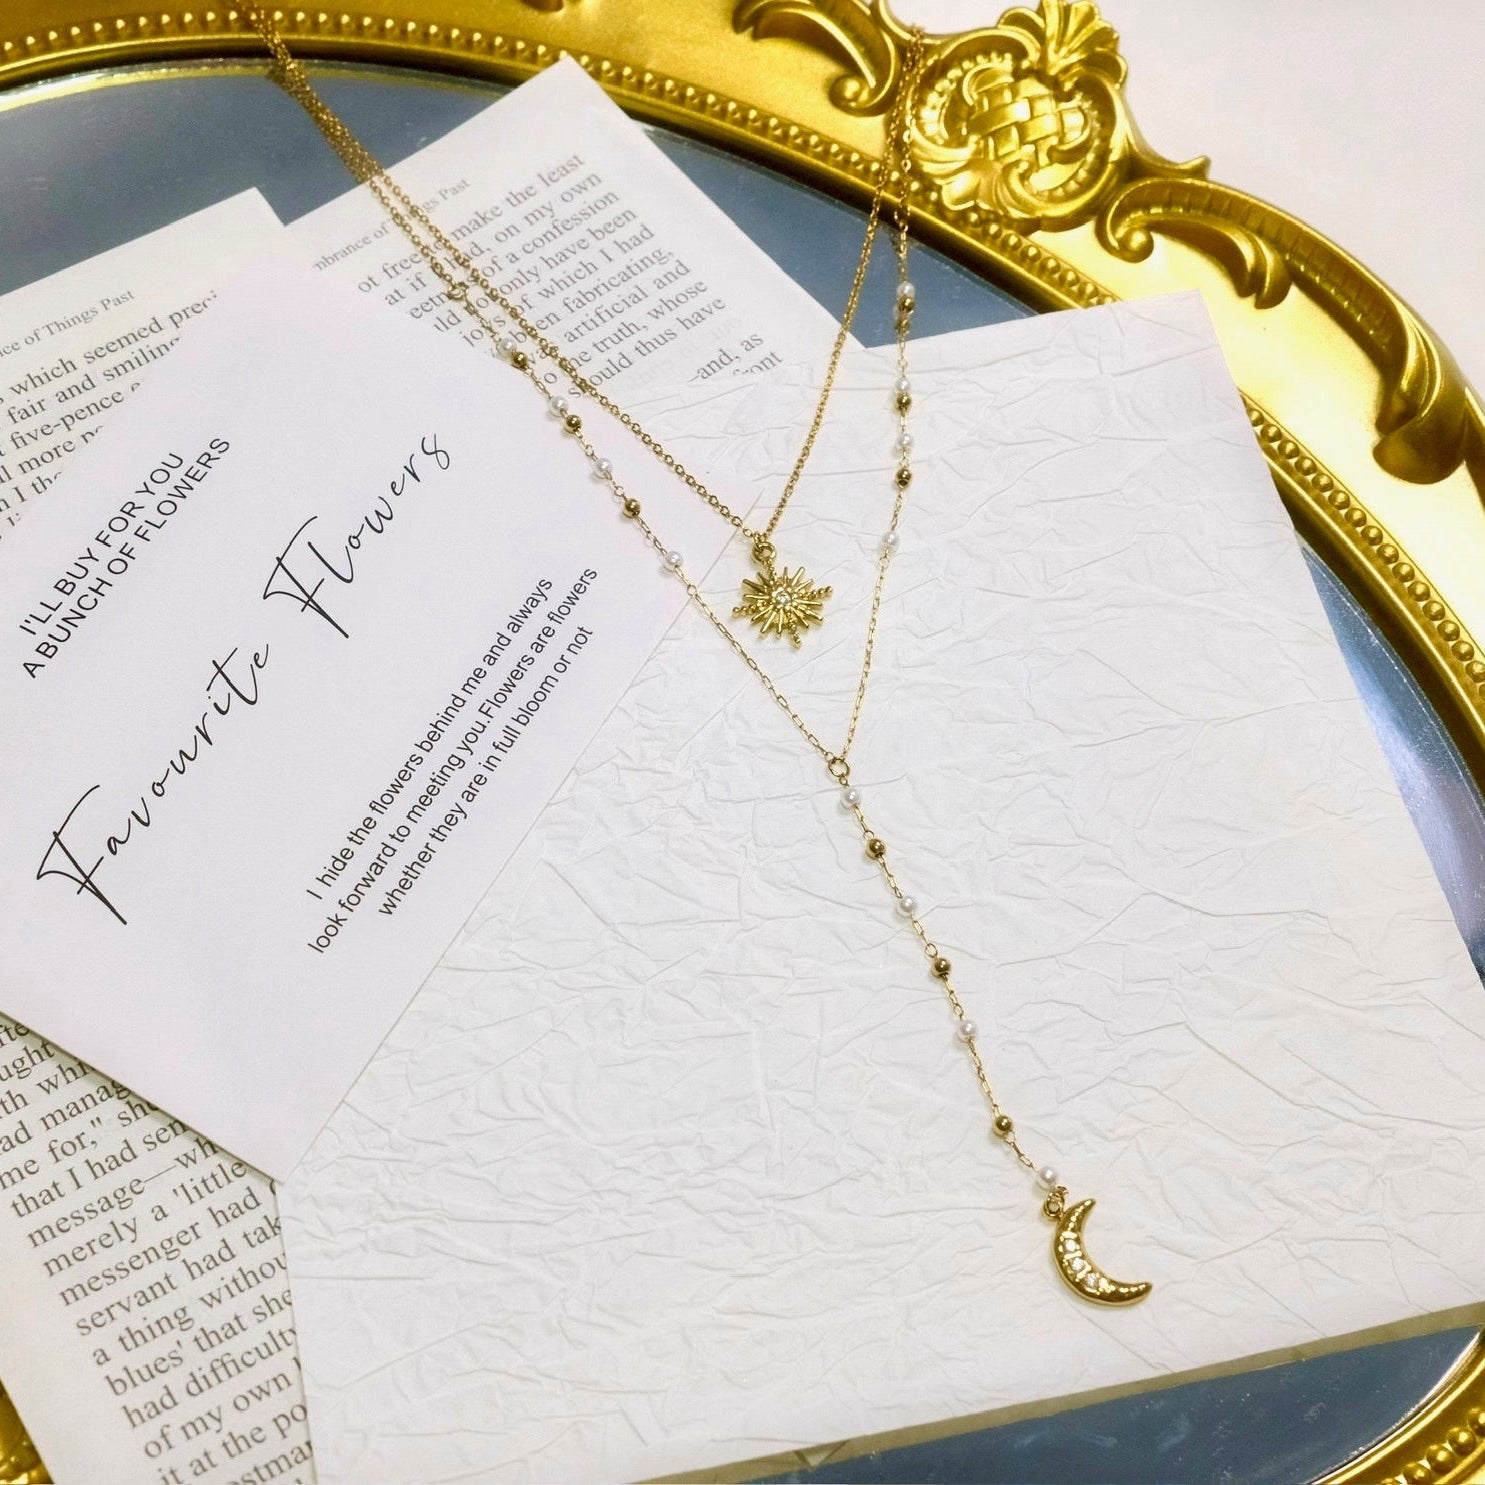 I'LL BUY FOR YOU
A BUNCH OF FLOWERS
Favourite Flowers
I hide the flowers behind me and always
look forward to meeting you.Flowers are flowers
whether they are in full bloom or not
of Things Past
which seemed
fair and smiling
five-pence
more
I
of Things Past
make the least
at if I had, on my own
of a confession
not only have been
of which I had
been fabricating,
artificial and
the truth, whose
should thus have
—and, as
front
had
me for," she
that I had
message—
merely a 'little
messenger had
servant had
a thing
blues' that she
had difficulty
of my own
it at the